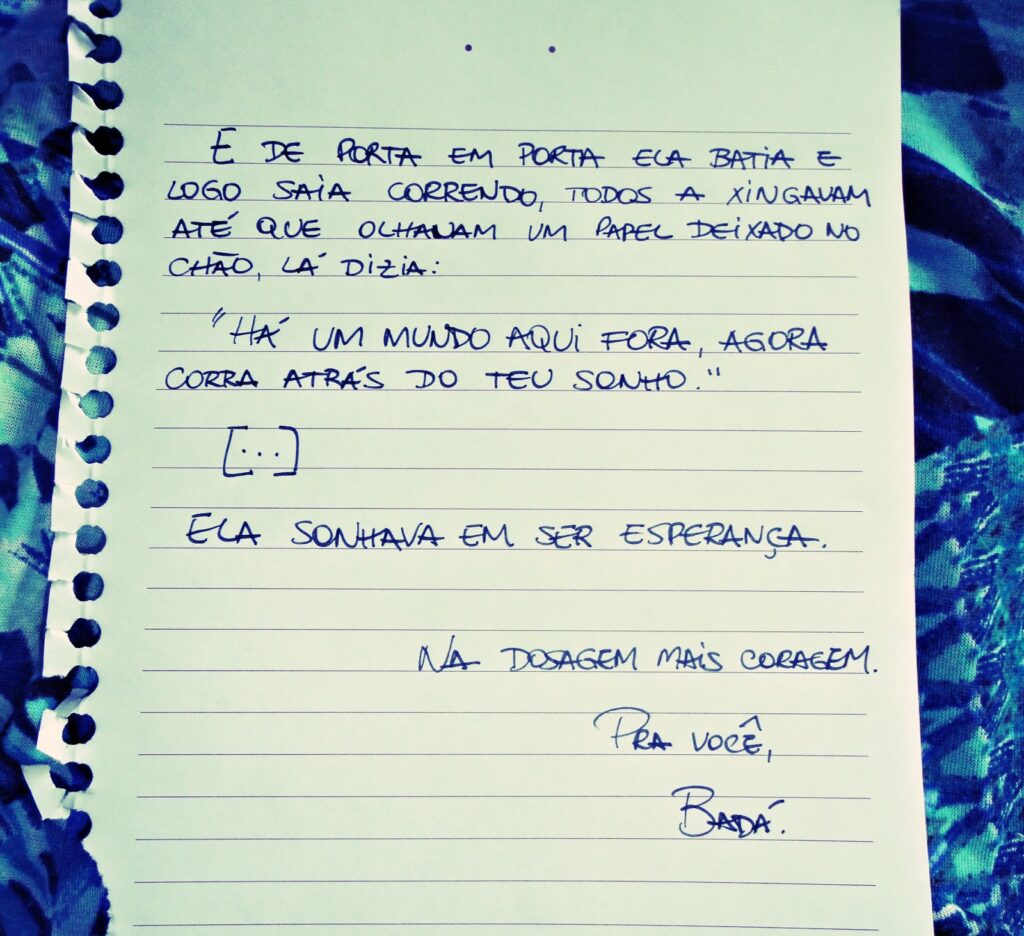 E DE PORTA EM PORTA ELA BATIA E
LOGO SAIA CORRENDO, TODOS A XINGAVAM
ATÉ QUE OLHAVAM UM PAPEL DEIXADO NO
CHÃO, LÁ DIZIA:
"HÁ UM MUNDO AQUI FORA, AGORA
CORRA ATRÁS DO TEU SONHO."
[...]
ELA SONHAVA EM SER ESPERANÇA.
NA DOSAGEM MAIS CORAGEM.
PRA VOCÊ,
BADÁ.